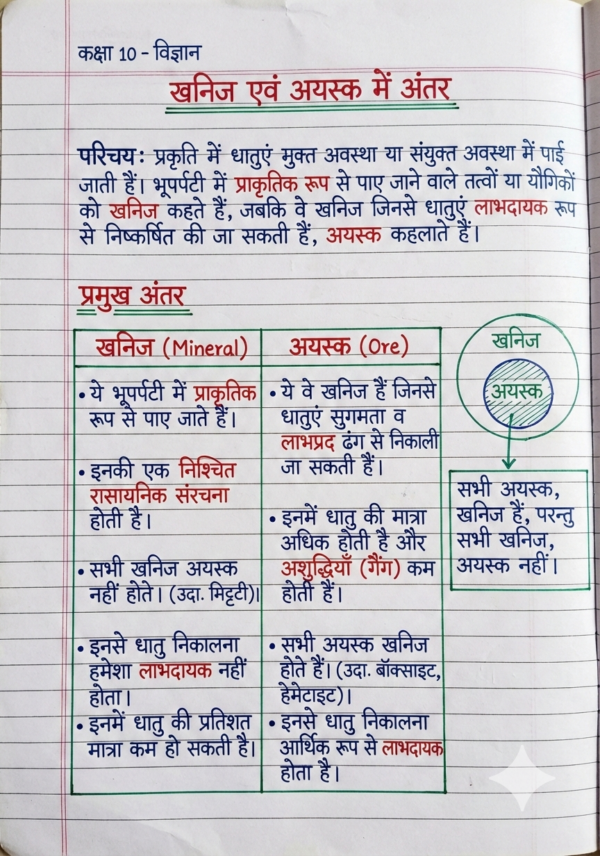 कक्षा 10 - विज्ञान
खनिज एवं अयस्क में अंतर
परिचय: प्रकृति में धातुएं मुक्त अवस्था या संयुक्त अवस्था में पाई
जाती हैं। भूपर्पटी में प्राकृतिक रूप से पाए जाने वाले तत्वों या यौगिकों
को खनिज कहते हैं, जबकि वे खनिज जिनसे धातुएं लाभदायक रूप
से निष्कर्षित की जा सकती हैं, अयस्क कहलाते हैं।
प्रमुख अंतर
खनिज (Mineral)
• ये भूपर्पटी में प्राकृतिक
रूप से पाए जाते हैं।
• इनकी एक निश्चित
रासायनिक संरचना
होती है।
• सभी खनिज अयस्क
नहीं होते। (उदा. मिट्टटी)।
• इनसे धातु निकालना
हमेशा लाभदायक नहीं
होता।
• इनमें धातु की प्रतिशत
मात्रा कम हो सकती है।
अयस्क (Ore)
• ये वे खनिज हैं जिनसे
धातुएं सुगमता व
लाभप्रद ढंग से निकाली
जा सकती हैं।
• इनमें धातु की मात्रा
अधिक होती है और
अशुद्धियाँ (गैंग) कम
होती हैं।
• सभी अयस्क खनिज
होते हैं। (उदा. बॉक्साइट,
हेमेटाइट)।
• इनसे धातु निकालना
आर्थिक रूप से लाभदायक
होता है।
खनिज
अयस्क
सभी अयस्क,
खनिज हैं, परन्तु
सभी खनिज,
अयस्क नहीं।